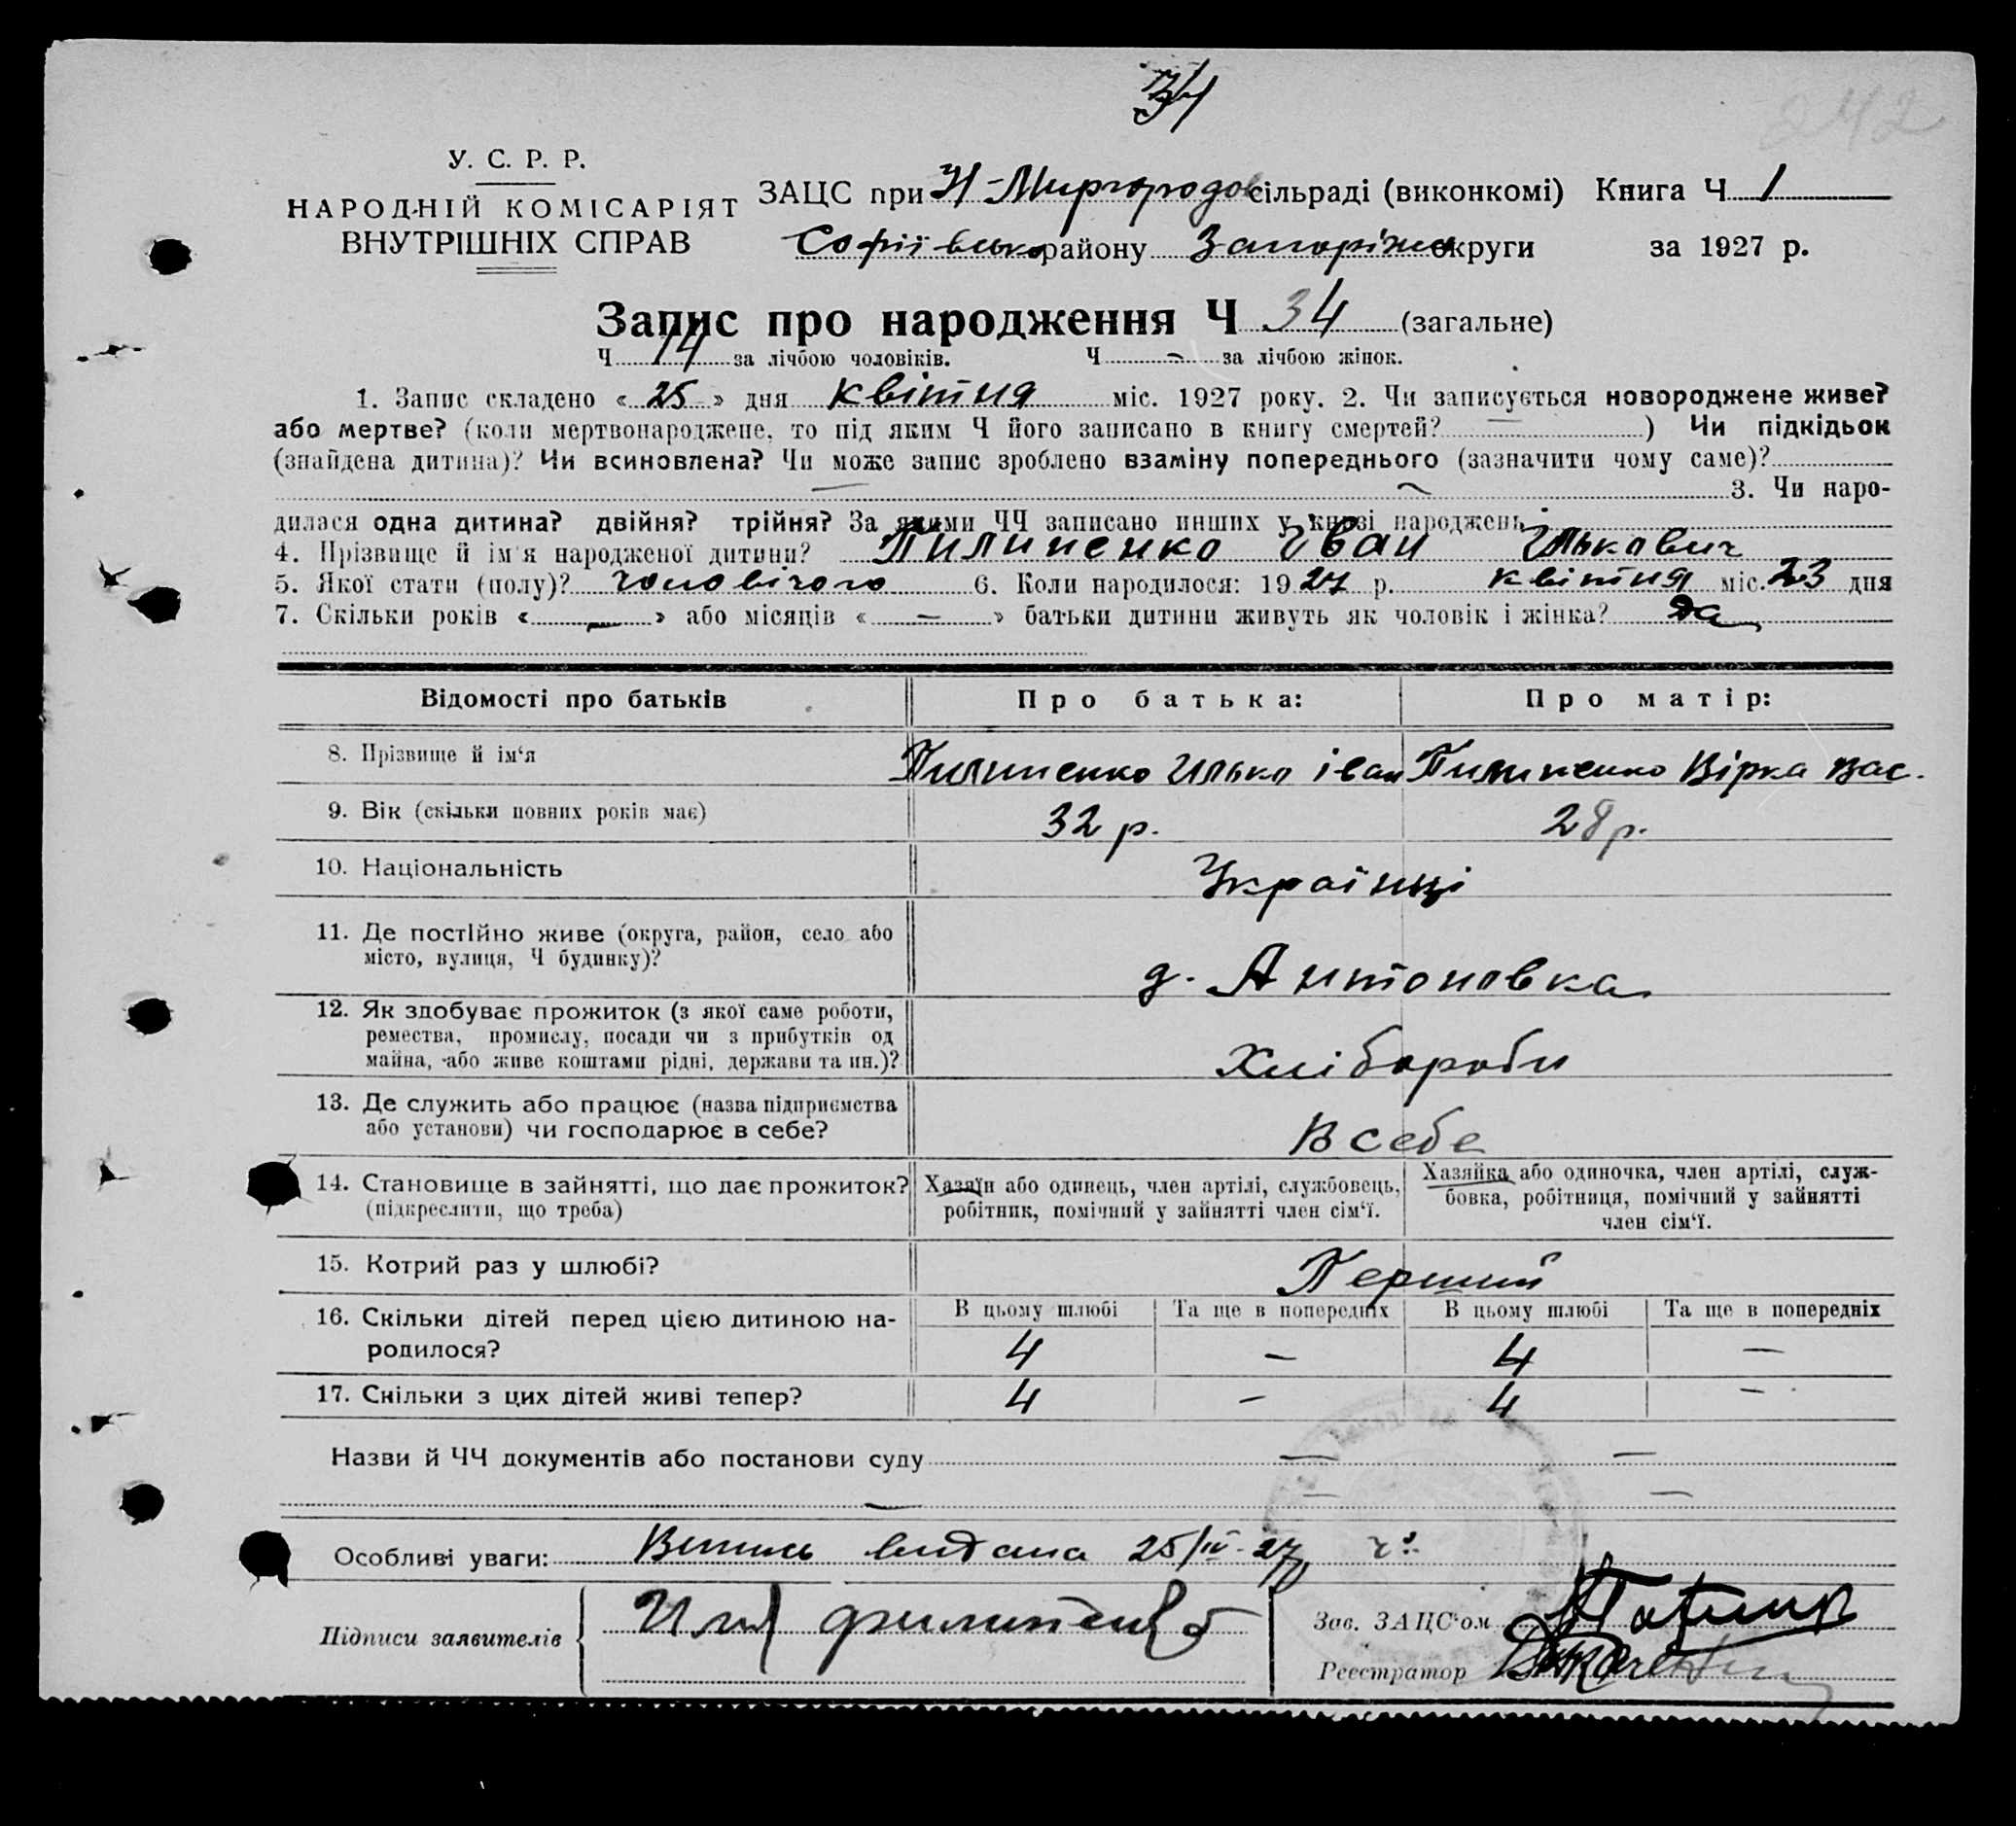 34
242
У. С. Р. Р.
НАРОДНІЙ КОМІСАРІЯТ
ВНУТРІШНІХ СПРАВ
ЗАЦС при Н-Миргородов сільраді (виконкомі) Книга Ч 1
Софіївсько району Запоріжс округи за 1927 р.
Запис про народження Ч 34 (загальне)
Ч 14 за лічбою чоловіків. Ч - за лічбою жінок.
1. Запис складено « 25 » дня квітня міс. 1927 року. 2. Чи записується новороджене живе?
або мертве? (коли мертвонароджене, то під яким Ч його записано в книгу смертей? — ) Чи підкідьок
(знайдена дитина)? Чи всиновлена? Чи може запис зроблено взаміну попереднього (зазначити чому саме)?
— — 3. Чи наро-
дилася одна дитина? двійня? трійня? За якими ЧЧ записано инших у книзі народжень
4. Прізвище й ім'я народженої дитини? Пилипенко Іван Ількович
5. Якої стати (полу)? чоловічого 6. Коли народилося: 1927 р. квітня міс. 23 дня
7. Скільки років « — » або місяців « — » батьки дитини живуть як чоловік і жінка? Да
Відомості про батьків Про батька: Про матір:
8. Прізвище й ім'я Пилипенко Илько іван Пилипенко Вірка Вас.
9. Вік (скільки повних років має) 32 р. 28 р.
10. Національність Українці
11. Де постійно живе (округа, район, село або
місто, вулиця, Ч будинку)? д. Антоновка
12. Як здобуває прожиток (з якої саме роботи,
ремества, промислу, посади чи з прибутків од
майна, або живе коштами рідні, держави та ин.)? Хлібороби
13. Де служить або працює (назва підприємства
або установи) чи господарює в себе? В себе
14. Становище в зайнятті, що дає прожиток?
(підкреслити, що треба)
Хазяїн або одинець, член артілі, службовець,
робітник, помічний у зайнятті член сім'ї.
Хазяйка або одиночка, член артілі, служ-
бовка, робітниця, помічний у зайнятті
член сім'ї.
15. Котрий раз у шлюбі? Перший
В цьому шлюбі Та ще в попередніх В цьому шлюбі Та ще в попередніх
16. Скільки дітей перед цією дитиною на-
родилося? 4 — 4 —
17. Скільки з цих дітей живі тепер? 4 — 4 —
Назви й ЧЧ документів або постанови суду — —
— — —
Особливі уваги: Випись видана 25/IV-27
Підписи заявителів
Зав. ЗАЦС'ом
Реєстратор